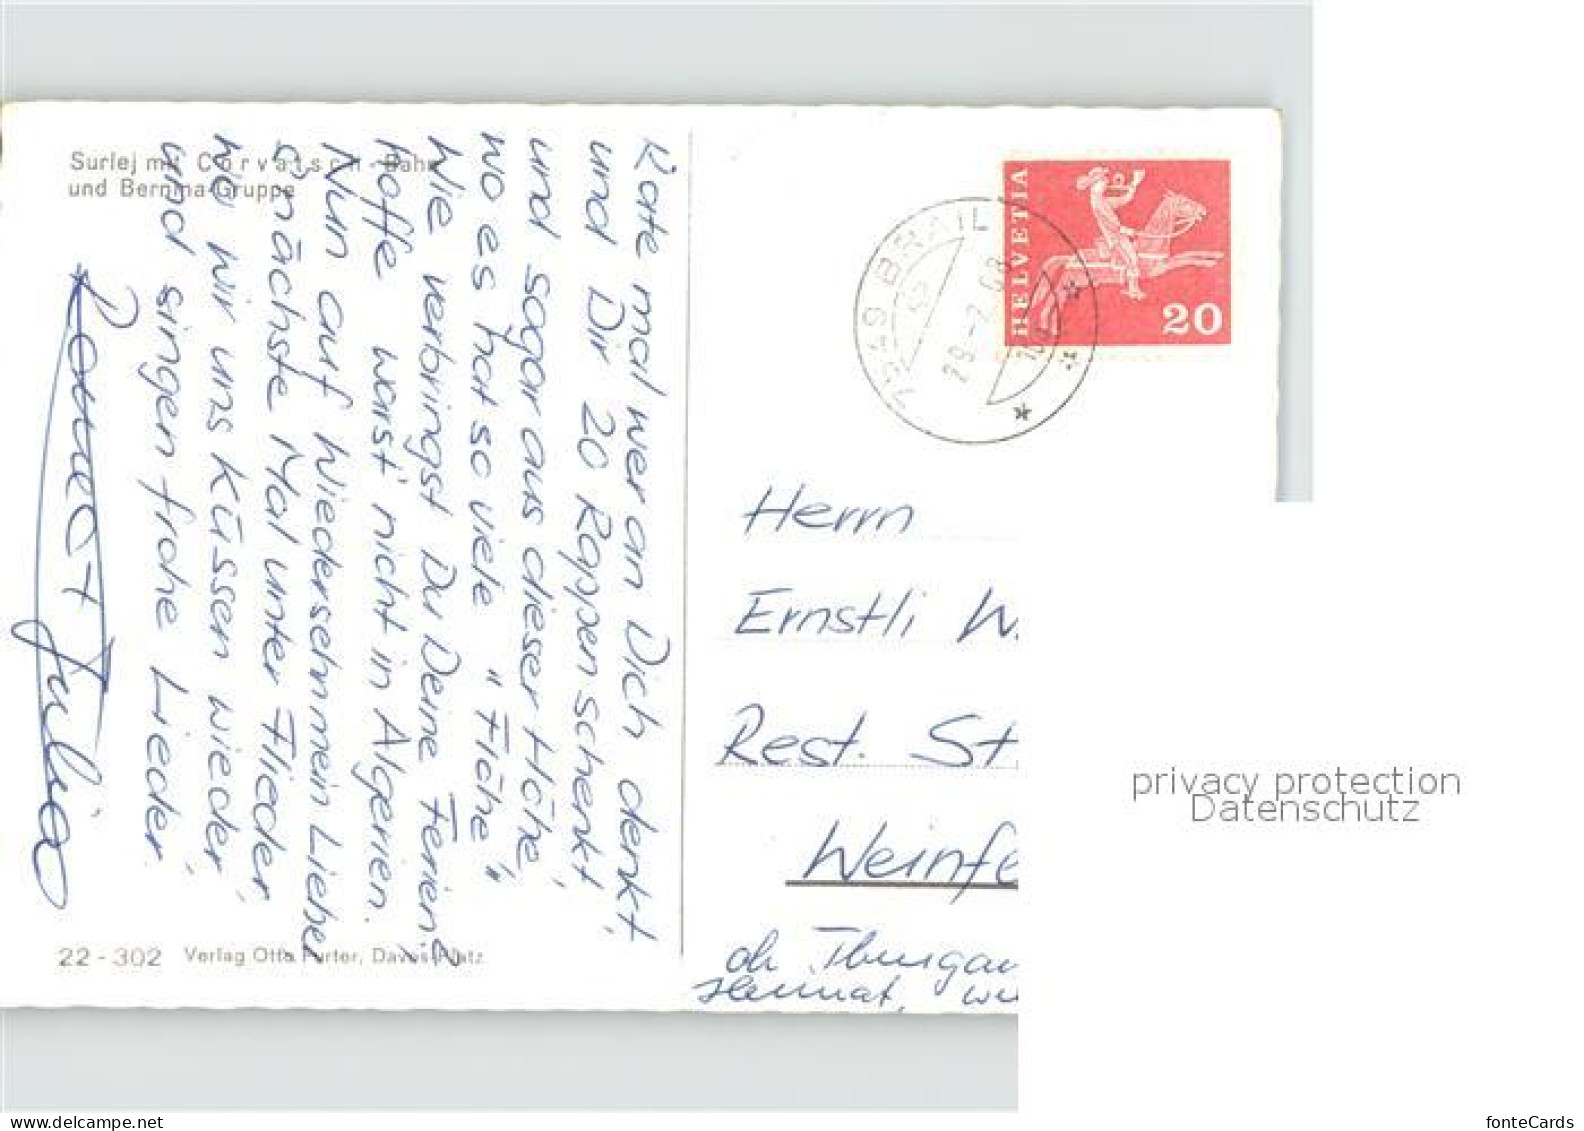 Surlej mit Corvatsch-Bahn
und Bernina-Gruppe
Rate mal wer an Dich denkt,
und Dir 20 Rappen schenkt,
und sogar aus dieser Höhe,
wo es hat so viele "Flöhe"
Wie verbringst Du Deine Ferien?
hoffe warst' nicht in Algerien.
Nun auf Wiedersehn mein Lieber
s'nächste Mal unter Flieder,
wo wir uns küssen wieder,
und singen frohe Lieder.
22-302 Verlag Otto Furter, Davos-Platz
HELVETIA
20
7549 BRAIL
29-7.68
Herrn
Ernstli W.
Rest. St
Weinfe
oh Thurgau
Heimat, wi
privacy protection
Datenschutz
www.delcampe.net
fonteCards